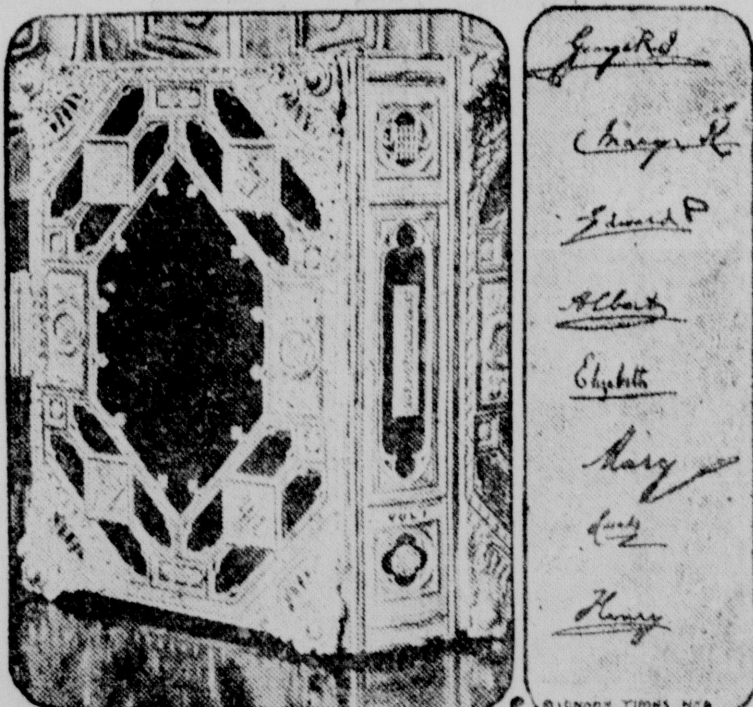 George R.I.
Mary R
Edward P
Albert
Elizabeth
Mary
Henry
VOL. I
© LONDON TIMES NEA